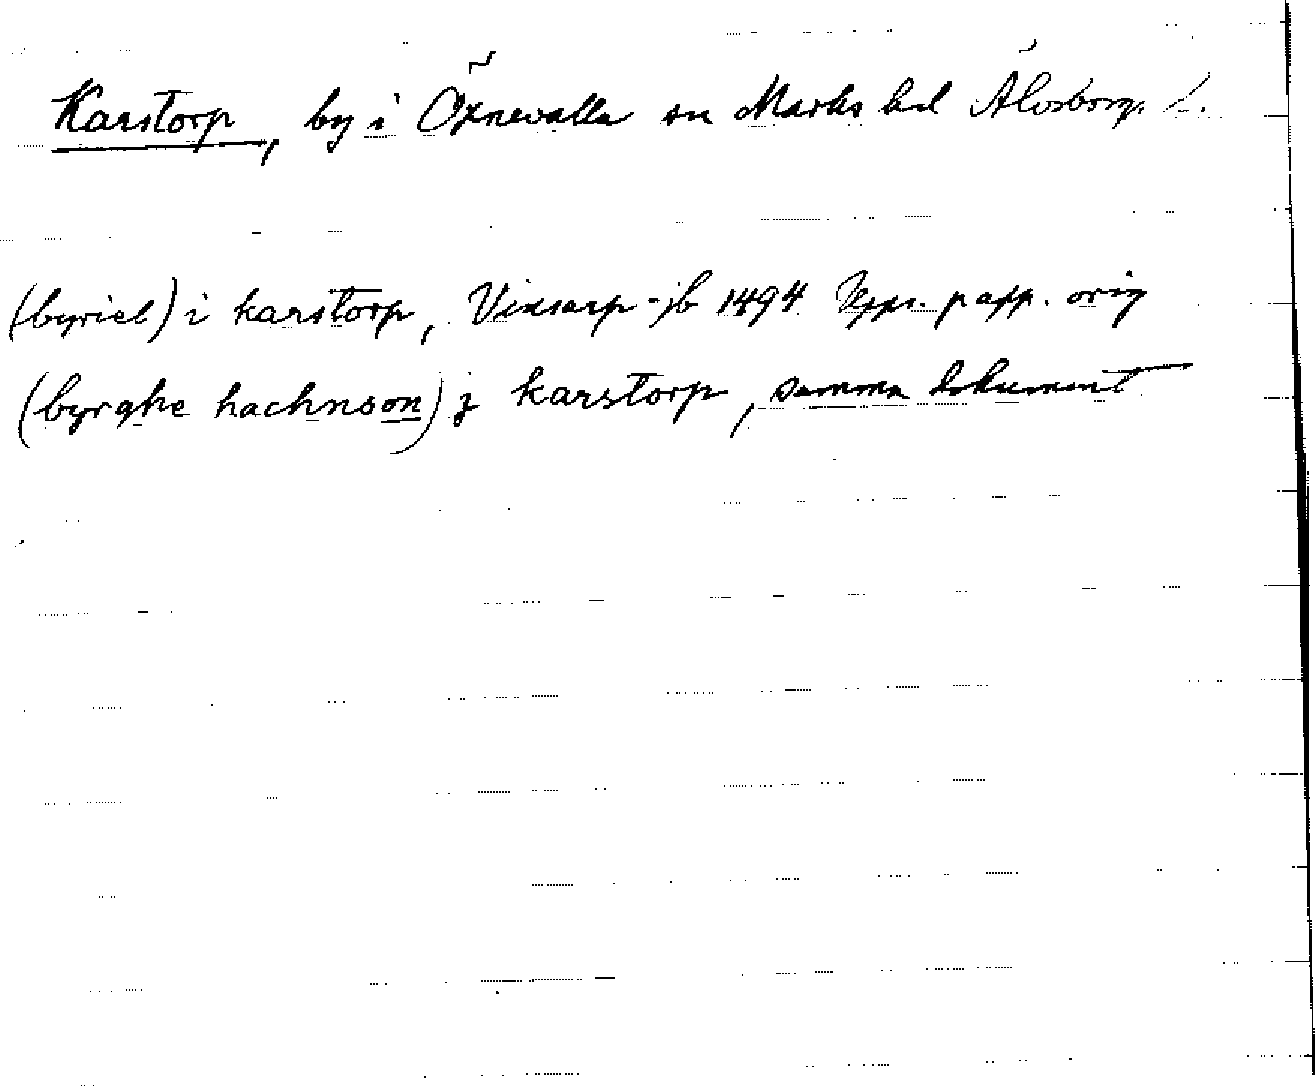 Karstorp, by i Öxnevalla sn Marks hd Älvsborgs l.
(byriel) i karstorp, Vinsarp-jb 1494 papp. orig
(byrghe hachnson) j karstorp, samma dokument